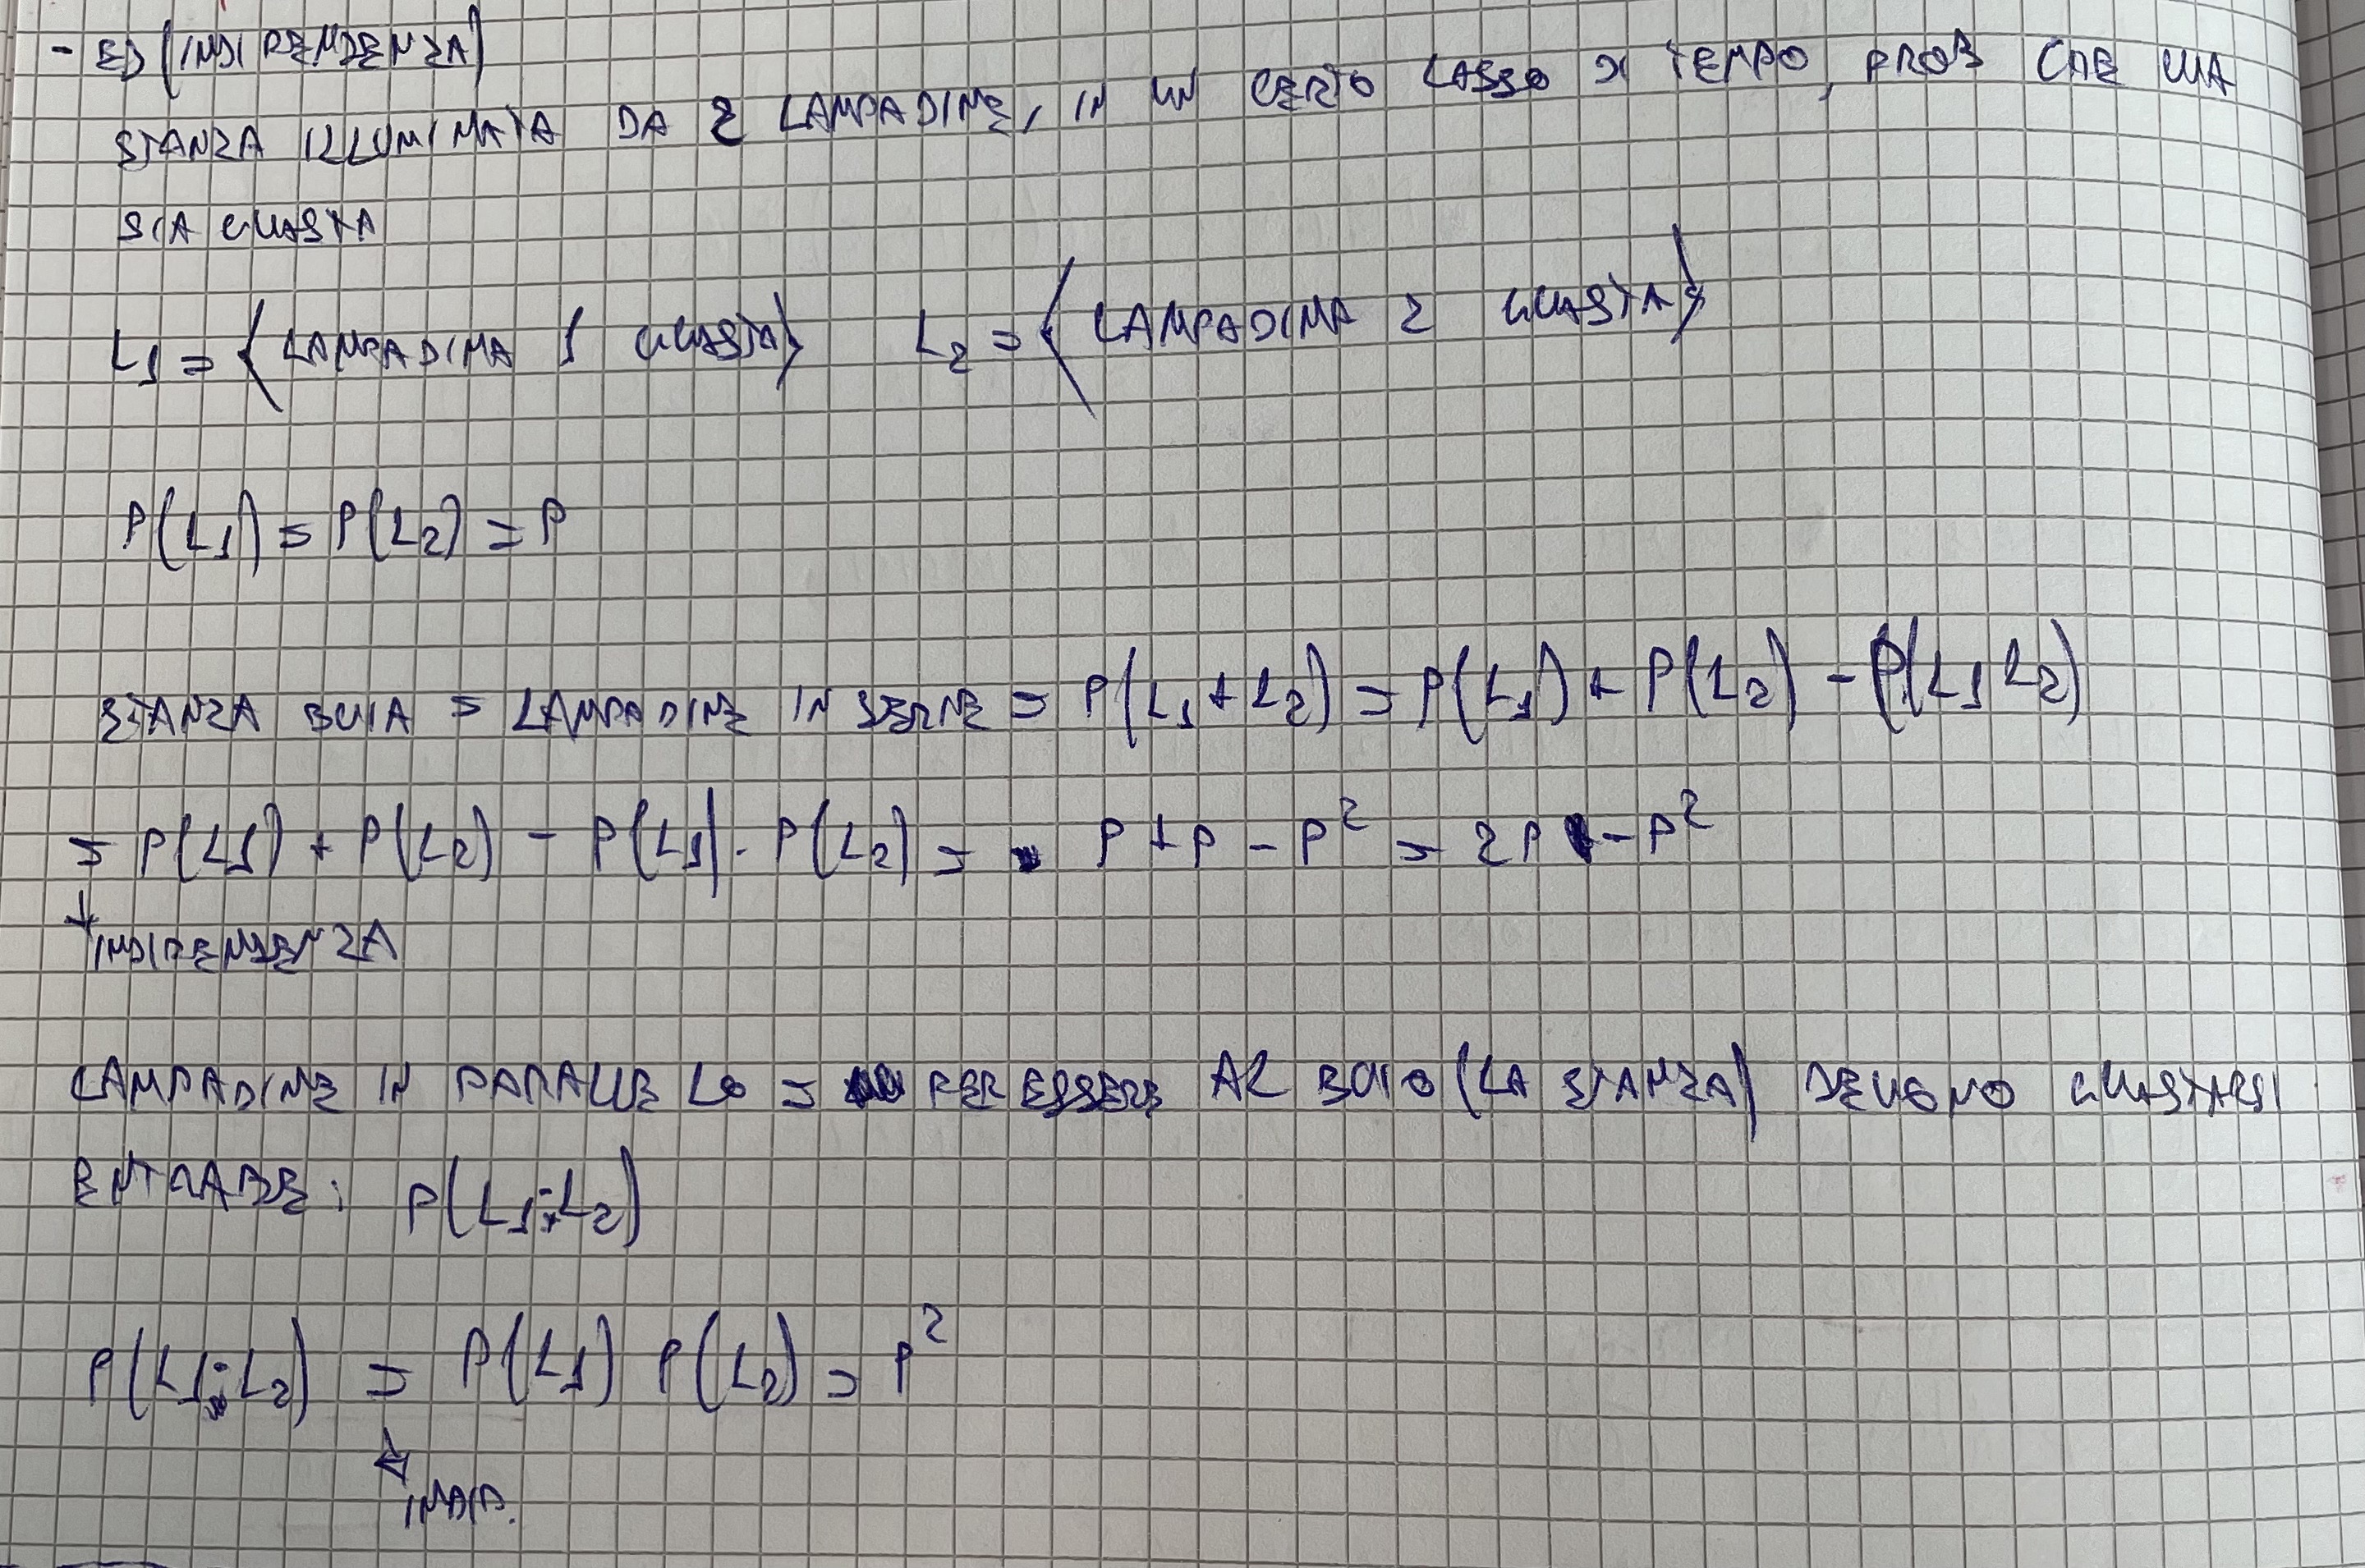 - ES (INDIPENDENZA)
STANZA ILLUMINATA DA 2 LAMPADINE, IN UN CERTO LASSO DI TEMPO, PROB CHE UNA
SIA GUASTA
L₁ = {LAMPADINA 1 GUASTA} L₂ = {LAMPADINA 2 GUASTA}
P(L₁) = P(L₂) = P
STANZA BUIA = LAMPADINE IN SERIE = P(L₁ + L₂) = P(L₁) + P(L₂) - P(L₁ L₂)
= P(L₁) + P(L₂) - P(L₁) · P(L₂) = P + P - P² = 2P - P²
↓ INDIPENDENZA
LAMPADINE IN PARALLELO = PER ESSERE AL BUIO (LA STANZA) DEVONO GUASTARSI
ENTRAMBE: P(L₁ · L₂)
P(L₁ · L₂) = P(L₁) P(L₂) = P²
INDIP.